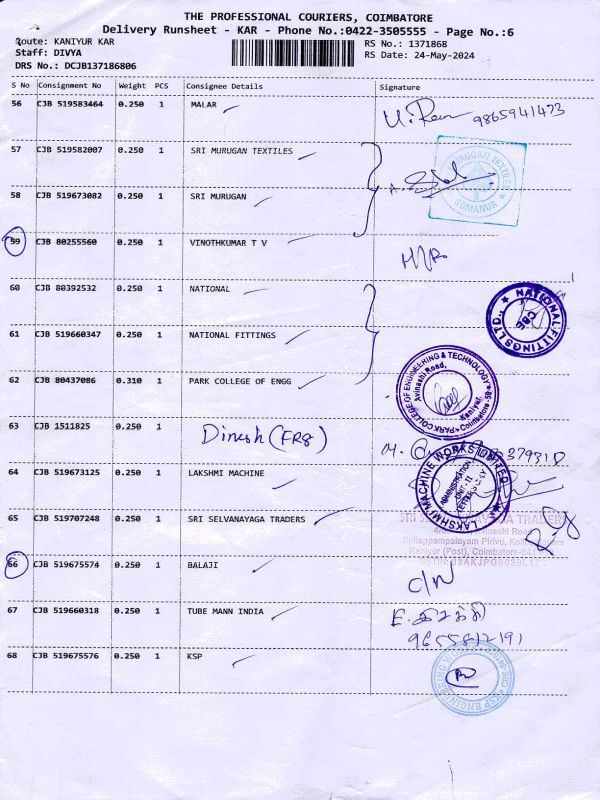 THE PROFESSIONAL COURIERS, COIMBATORE
Delivery Runsheet - KAR - Phone No.:0422-3505555 - Page No.:6
Route: KANIYUR KAR
RS No.: 1371868
Staff: DIVYA
RS Date: 24-May-2024
DRS No.: DCJB137186806
S No Consignment No Weight PCS Consignee Details Signature
56 CJB 519583464 0.250 1 MALAR 9865941473
57 CJB 519582007 0.250 1 SRI MURUGAN TEXTILES
SOMANUR
58 CJB 519673082 0.250 1 SRI MURUGAN
59 CJB 80255560 0.250 1 VINOTHKUMAR T V
60 CJB 80392532 0.250 1 NATIONAL
NATIONAL FITTINGS LTD., CBE
61 CJB 519660347 0.250 1 NATIONAL FITTINGS
62 CJB 80437086 0.310 1 PARK COLLEGE OF ENGG
PARK COLLEGE OF ENGINEERING & TECHNOLOGY
Avinashi Road,
Kaniyur,
Coimbatore-59
63 CJB 1511825 0.250 1 Dinesh (FRS)
64 CJB 519673125 0.250 1 LAKSHMI MACHINE
LAKSHMI MACHINE WORKS LIMITED
ADMINISTRATION
UNIT-II
65 CJB 519707248 0.250 1 SRI SELVANAYAGA TRADERS
66 CJB 519675574 0.250 1 BALAJI C/N
67 CJB 519660318 0.250 1 TUBE MANN INDIA
9655812191
68 CJB 519675576 0.250 1 KSP
KSP ENGINEERING